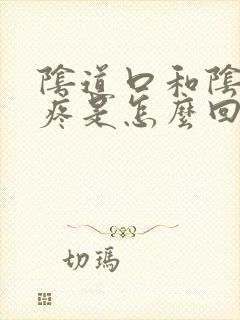 陰道口和陰
疼是怎麼回
切瑪